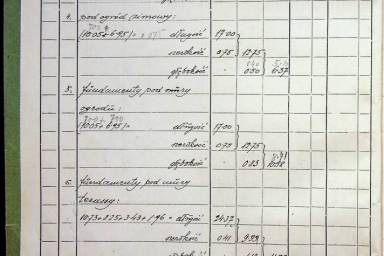 4. pod ogród zimowy:
(10.05+6.95)= długość 17.00
szerokość 0.75 12.75
głębokość 0.50 6.37
5. fundamenty pod mury
ogrodu:
(10.05+6.95)= długość 17.00
szerokość 0.75 12.75
głębokość 0.83 10.58
6. fundamenty pod mury
terasy:
10.73+8.25+3.43+1.96= długość 24.37
szerokość 0.41 9.99
głębokość